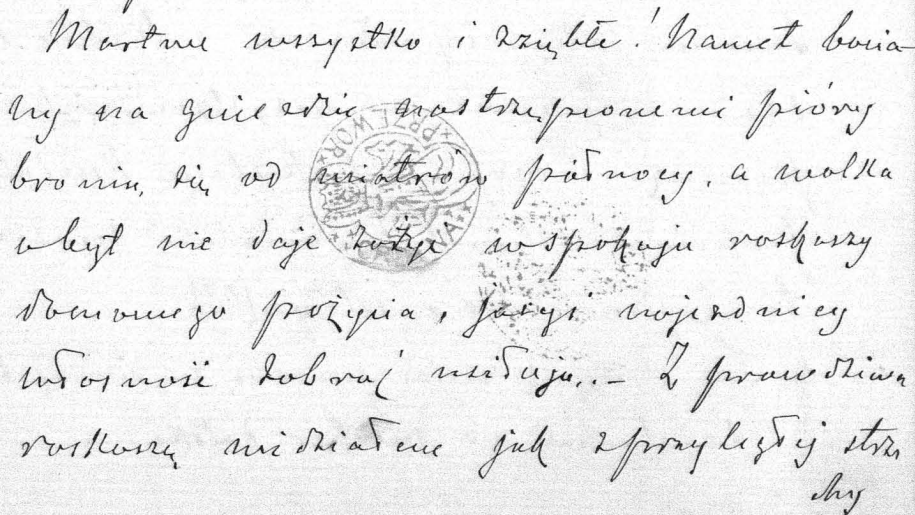 Martwe wszystko i zziębłe! Nawet bocia-
ny na gnieździe nastrzępionemi pióry
bronią się od wiatrów północy, a walka
o byt nie daje zażyć w spokoju roskoszy
domowego pożycia, jacyś najezdnicy
własność zabrać usiłują..– Z prawdziwą
roskoszą widziałem jak z przyległej strze
chy
PRZEWOR